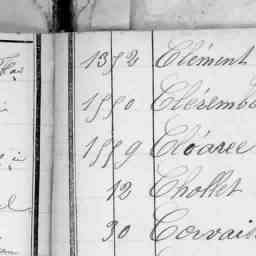 1352 Clément
1550 Cléremb
1559 Cloarec
12 Chollet
30 Corvais